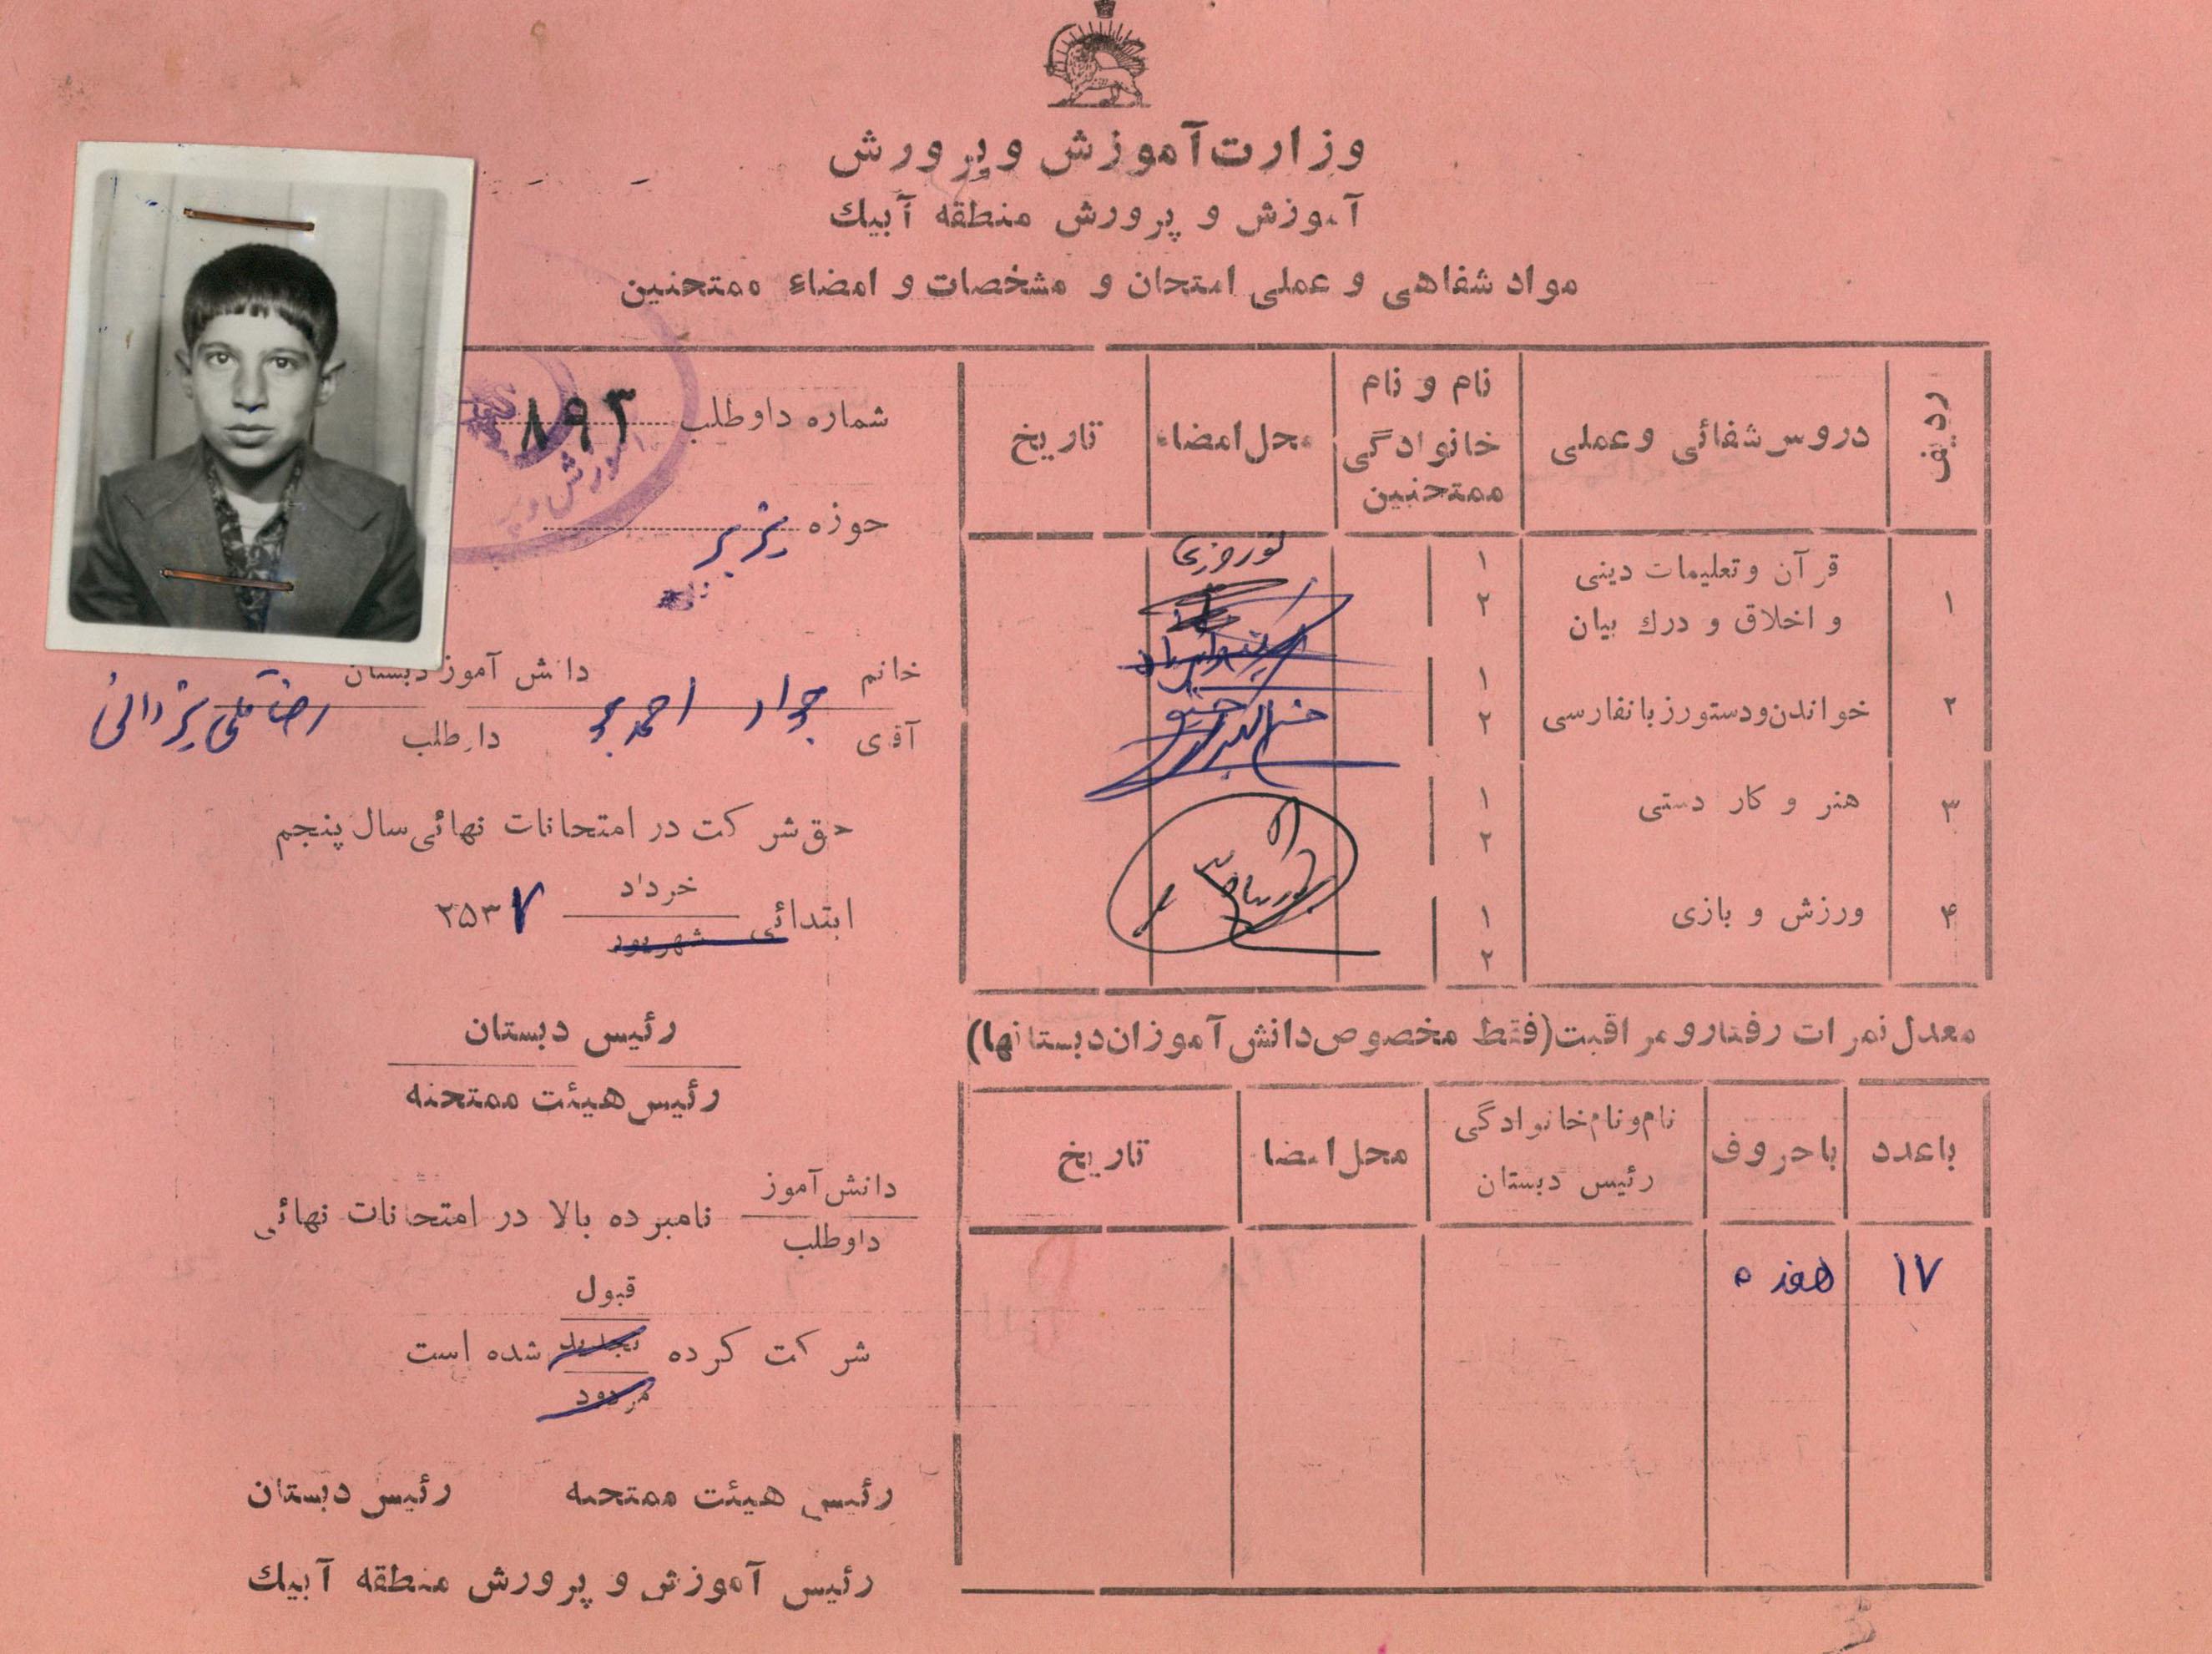 وزارت آموزش و پرورش
آموزش و پرورش منطقه آبیك
مواد شفاهی و عملی امتحان و مشخصات و امضاء ممتحنین
ردیف
دروس شفائی و عملی
نام و نام خانوادگی ممتحنین
محل امضاء
تاریخ
۱
قرآن و تعلیمات دینی
و اخلاق و درك بیان
۱
۲
نوروزی
۲
خواندن و دستور زبان فارسی
۱
۲
۳
هنر و کار دستی
۱
۲
۴
ورزش و بازی
۱
۲
معدل نمرات رفتار و مراقبت (فقط مخصوص دانش آموزان دبستانها)
با عدد
با حروف
نام و نام خانوادگی
رئیس دبستان
محل امضا
تاریخ
۱۷
هفده
شماره داوطلب ۸۹۳
آموزش و پر
حوزه
خانم
آقای
جواد احمد
دانش آموز دبستان
داوطلب
رضاقلی یزدانی
حق شرکت در امتحانات نهائی سال پنجم
ابتدائی خرداد
شهریور
۲۵۳۷
رئیس دبستان
رئیس هیئت ممتحنه
دانش آموز
داوطلب
نامبرده بالا در امتحانات نهائی
قبول
شرکت کرده تجدید شده است
مردود
رئیس هیئت ممتحنه رئیس دبستان
رئیس آموزش و پرورش منطقه آبیك